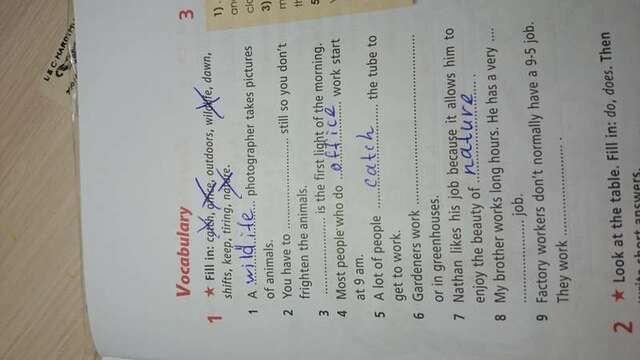 3
Vocabulary
1 ★ Fill in: catch, office, outdoors, wildlife, dawn,
shifts, keep, tiring, nature.
1 A wildlife photographer takes pictures
of animals.
2 You have to .................. still so you don't
frighten the animals.
3 .................. is the first light of the morning.
4 Most people who do office work start
at 9 am.
5 A lot of people catch the tube to
get to work.
6 Gardeners work ..................
or in greenhouses.
7 Nathan likes his job because it allows him to
enjoy the beauty of nature.
8 My brother works long hours. He has a very ....
.................. job.
9 Factory workers don't normally have a 9-5 job.
They work .................. .
2 ★ Look at the table. Fill in: do, does. Then
answers.
1)
3)
5